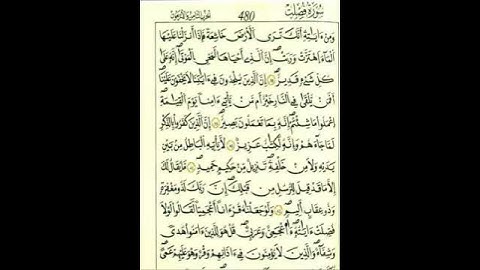 سُورَةُ فُصِّلَتْ
480
الحزب الثامن والأربعون
وَمِنْ ءَايَٰتِهِۦٓ أَنَّكَ تَرَى ٱلْأَرْضَ خَٰشِعَةً فَإِذَآ أَنزَلْنَا عَلَيْهَا
ٱلْمَآءَ ٱهْتَزَّتْ وَرَبَتْ إِنَّ ٱلَّذِىٓ أَحْيَاهَا لَمُحْىِ ٱلْمَوْتَىٰٓ إِنَّهُۥ عَلَىٰ
كُلِّ شَىْءٍ قَدِيرٌ إِنَّ ٱلَّذِينَ يُلْحِدُونَ فِىٓ ءَايَٰتِنَا لَا يَخْفَوْنَ عَلَيْنَآ
أَفَمَن يُلْقَىٰ فِى ٱلنَّارِ خَيْرٌ أَم مَّن يَأْتِىٓ ءَامِنًا يَوْمَ ٱلْقِيَٰمَةِ
ٱعْمَلُوا۟ مَا شِئْتُمْ إِنَّهُۥ بِمَا تَعْمَلُونَ بَصِيرٌ إِنَّ ٱلَّذِينَ كَفَرُوا۟ بِٱلذِّكْرِ
لَمَّا جَآءَهُمْ وَإِنَّهُۥ لَكِتَٰبٌ عَزِيزٌ لَّا يَأْتِيهِ ٱلْبَٰطِلُ مِنۢ بَيْنِ
يَدَيْهِ وَلَا مِنْ خَلْفِهِۦ تَنزِيلٌ مِّنْ حَكِيمٍ حَمِيدٍ مَّا يُقَالُ لَكَ
إِلَّا مَا قَدْ قِيلَ لِلرُّسُلِ مِن قَبْلِكَ إِنَّ رَبَّكَ لَذُو مَغْفِرَةٍ
وَذُو عِقَابٍ أَلِيمٍ وَلَوْ جَعَلْنَٰهُ قُرْءَانًا أَعْجَمِيًّا لَّقَالُوا۟ لَوْلَا
فُصِّلَتْ ءَايَٰتُهُۥٓ ءَا۬عْجَمِىٌّ وَعَرَبِىٌّ قُلْ هُوَ لِلَّذِينَ ءَامَنُوا۟ هُدًى
وَشِفَآءٌ وَٱلَّذِينَ لَا يُؤْمِنُونَ فِىٓ ءَاذَانِهِمْ وَقْرٌ وَهُوَ عَلَيْهِمْ عَمًى